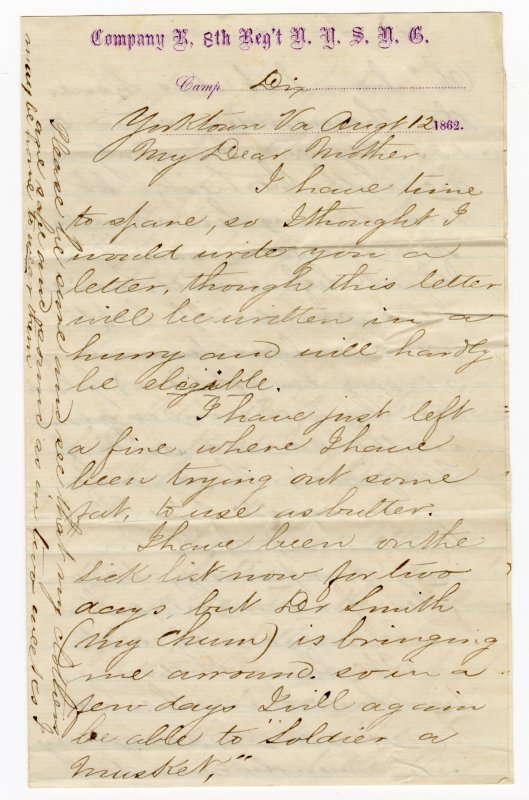 Company K, 8th Reg't N. Y. S. N. G.
Camp Dix
Yorktown Va Augt 12 1862.
My Dear Mother
I have time
to spare, so I thought I
would write you a
letter, though this letter
will be written in a
hurry and will hardly
be elegible.
I have just left
a fire where I have
been trying out some
fat, to use as butter.
I have been on the
sick list now for two
days, but Dr Smith
(my chum) is bringing
me arround. so in a
few days I will again
be able to "soldier a
musket,"
Please be sure and see that my clothes
are safe and sound as in two weeks I
may be home to wear them